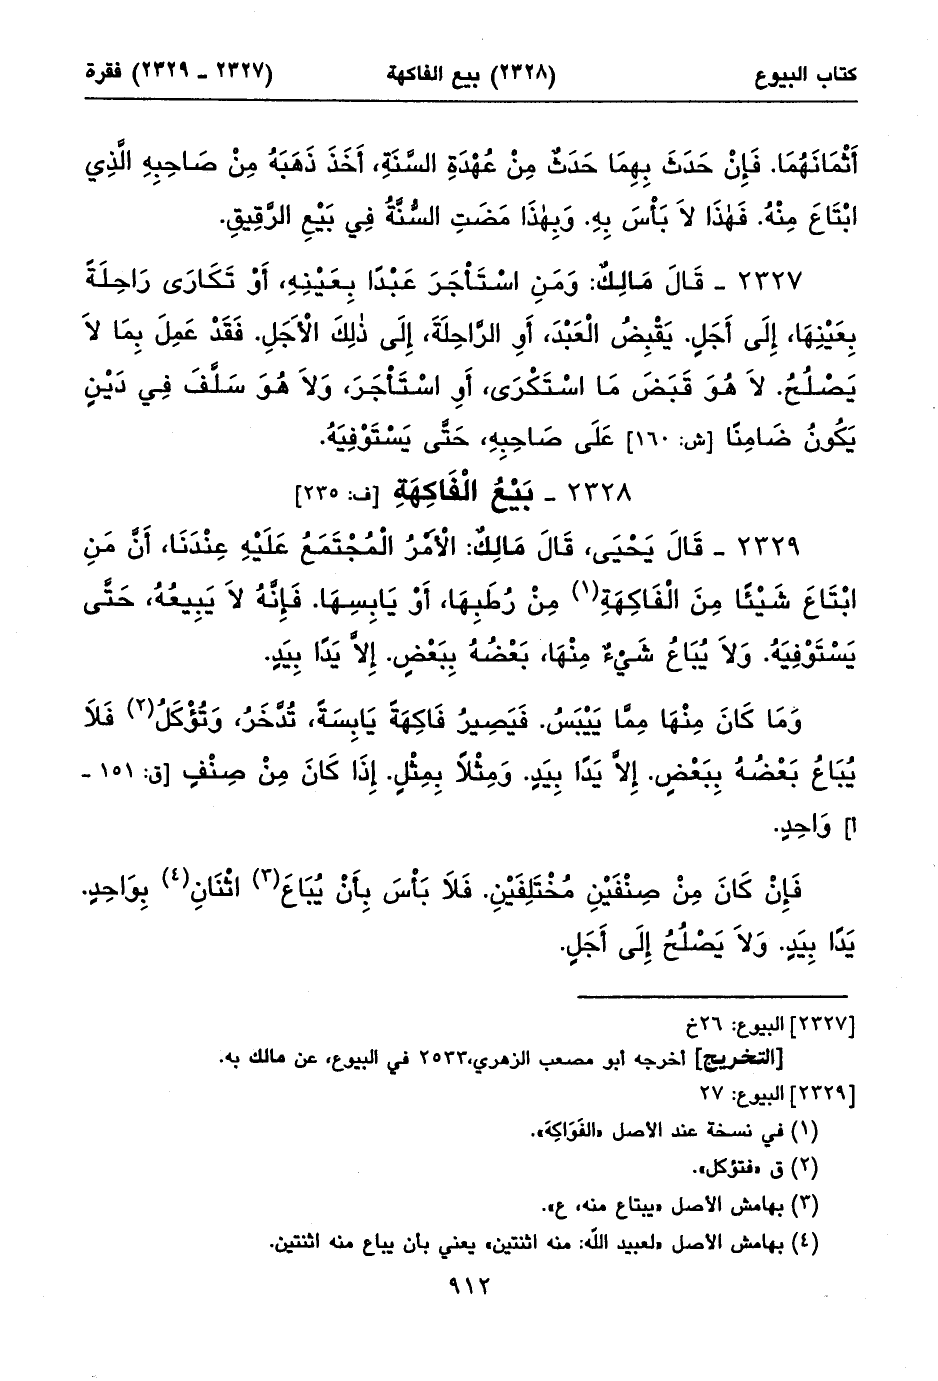 كتاب البيوع (٢٣٢٨) بيع الفاكهة (٢٣٢٧ ـ ٢٣٢٩) فقرة
أَثْمَانَهُمَا. فَإِنْ حَدَثَ بِهِمَا حَدَثٌ مِنْ عُهْدَةِ السَّنَةِ، أَخَذَ ذَهَبَهُ مِنْ صَاحِبِهِ الَّذِي
ابْتَاعَ مِنْهُ. فَهٰذَا لاَ بَأْسَ بِهِ. وَبِهٰذَا مَضَتِ السُّنَّةُ فِي بَيْعِ الرَّقِيقِ.
٢٣٢٧ ـ قَالَ مَالِكٌ: وَمَنِ اسْتَأْجَرَ عَبْدًا بِعَيْنِهِ، أَوْ تَكَارَى رَاحِلَةً
بِعَيْنِهَا، إِلَى أَجَلٍ. يَقْبِضُ الْعَبْدَ، أَوِ الرَّاحِلَةَ، إِلَى ذٰلِكَ الْأَجَلِ. فَقَدْ عَمِلَ بِمَا لاَ
يَصْلُحُ. لاَ هُوَ قَبَضَ مَا اسْتَكْرَى، أَوِ اسْتَأْجَرَ، وَلاَ هُوَ سَلَّفَ فِي دَيْنٍ
يَكُونُ ضَامِنًا [ش: ١٦٠] عَلَى صَاحِبِهِ، حَتَّى يَسْتَوْفِيَهُ.
٢٣٢٨ ـ بَيْعُ الْفَاكِهَةِ [ف: ٢٣٥]
٢٣٢٩ ـ قَالَ يَحْيَى، قَالَ مَالِكٌ: الْأَمْرُ الْمُجْتَمَعُ عَلَيْهِ عِنْدَنَا، أَنَّ مَنِ
ابْتَاعَ شَيْئًا مِنَ الْفَاكِهَةِ(١) مِنْ رُطَبِهَا، أَوْ يَابِسِهَا. فَإِنَّهُ لاَ يَبِيعُهُ، حَتَّى
يَسْتَوْفِيَهُ. وَلاَ يُبَاعُ شَيْءٌ مِنْهَا، بَعْضُهُ بِبَعْضٍ. إِلاَّ يَدًا بِيَدٍ.
وَمَا كَانَ مِنْهَا مِمَّا يَيْبَسُ. فَيَصِيرُ فَاكِهَةً يَابِسَةً، تُدَّخَرُ، وَتُؤْكَلُ(٢) فَلاَ
يُبَاعُ بَعْضُهُ بِبَعْضٍ. إِلاَّ يَدًا بِيَدٍ. وَمِثْلاً بِمِثْلٍ. إِذَا كَانَ مِنْ صِنْفٍ [ق: ١٥١ ـ
أ] وَاحِدٍ.
فَإِنْ كَانَ مِنْ صِنْفَيْنِ مُخْتَلِفَيْنِ. فَلاَ بَأْسَ بِأَنْ يُبَاعَ(٣) اثْنَانِ(٤) بِوَاحِدٍ.
يَدًا بِيَدٍ. وَلاَ يَصْلُحُ إِلَى أَجَلٍ.
[٢٣٢٧] البيوع: ٢٦خ
[التخريج] أخرجه أبو مصعب الزهري،٢٥٣٣ في البيوع، عن مالك به.
[٢٣٢٩] البيوع: ٢٧
(١) في نسخة عند الأصل «الفَوَاكِهَ».
(٢) ق «فتؤكل».
(٣) بهامش الأصل «يبتاع منه، ع».
(٤) بهامش الأصل «لعبيد الله: منه اثنتين» يعني بأن يباع منه اثنتين.
٩١٢